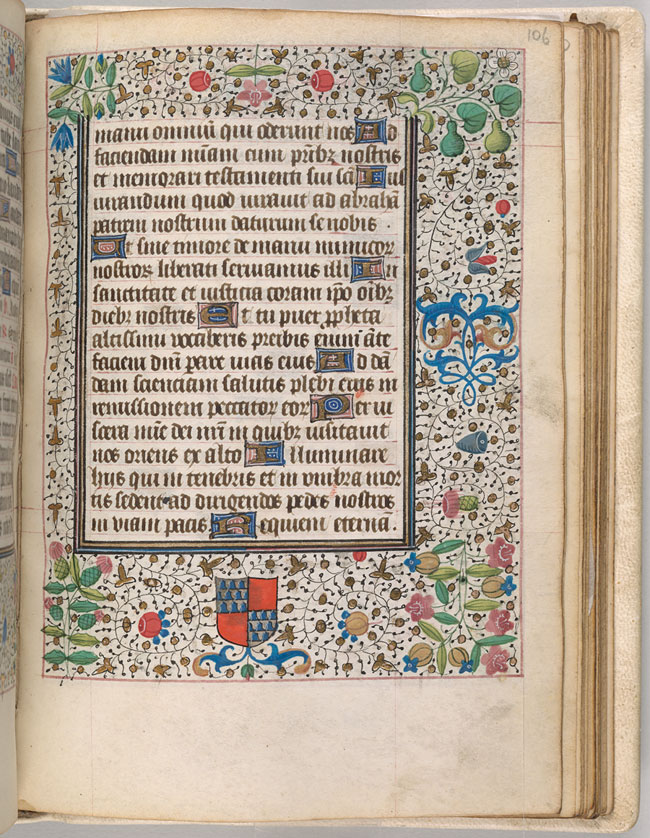 106
manu omniū qui oderunt nos Ad
faciendam mīam cum prībꝫ nostris
et memorari testamenti sui scī Ius
iurandum quod iuravit ad abrahā
patrem nostrum daturum se nobis .
Ut sine timore de manu inimicor
nostroꝝ liberati serviamus illi In
sanctitate et iusticia coram ip̄o oībꝫ
diebꝫ nostris Et tu puer ꝓpheta
altissimi vocaberis preibis enim āte
faciem dn̄i parare vias eius Ad dā
dam scienciam salutis plebi eius in
remissionem peccator eoꝝ Per vi
scera mīe dei nrī in quibꝫ visitavit
nos oriens ex alto Illuminare
hiis qui in tenebris et in umbra mor
tis sedent ad dirigendos pedes nostros
in viam pacis Requiem eternā .